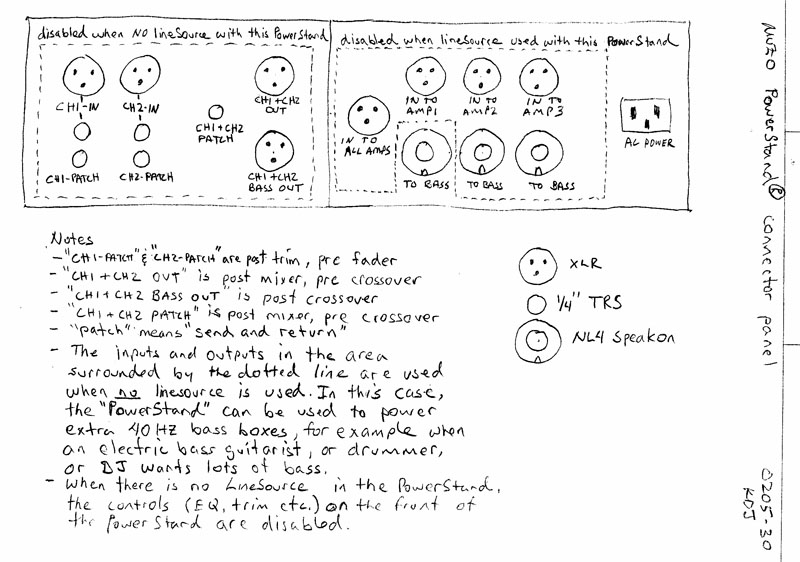 disabled when NO lineSource with this PowerStand
disabled when lineSource used with this PowerStand
CH1-IN
CH2-IN
CH1+CH2
OUT
CH1+CH2
PATCH
CH1-PATCH
CH2-PATCH
CH1+CH2
BASS OUT
IN TO
ALL AMPS
IN TO
AMP1
IN TO
AMP2
IN TO
AMP3
TO BASS
TO BASS
TO BASS
AC POWER
Notes
- "CH1-PATCH" & "CH2-PATCH" are post trim, pre fader
- "CH1+CH2 OUT" is post mixer, pre crossover
- "CH1+CH2 BASS OUT" is post crossover
- "CH1+CH2 PATCH" is post mixer, pre crossover
- "patch" means "send and return"
- The inputs and outputs in the area
surrounded by the dotted line are used
when no linesource is used. In this case,
the "PowerStand" can be used to power
extra 40Hz bass boxes, for example when
an electric bass guitarist, or drummer,
or DJ wants lots of bass.
- When there is no LineSource in the PowerStand,
the controls (EQ, trim etc.) on the front of
the PowerStand are disabled.
XLR
1/4" TRS
NL4 Speakon
PowerStand® connector panel
0205-30
KDJ